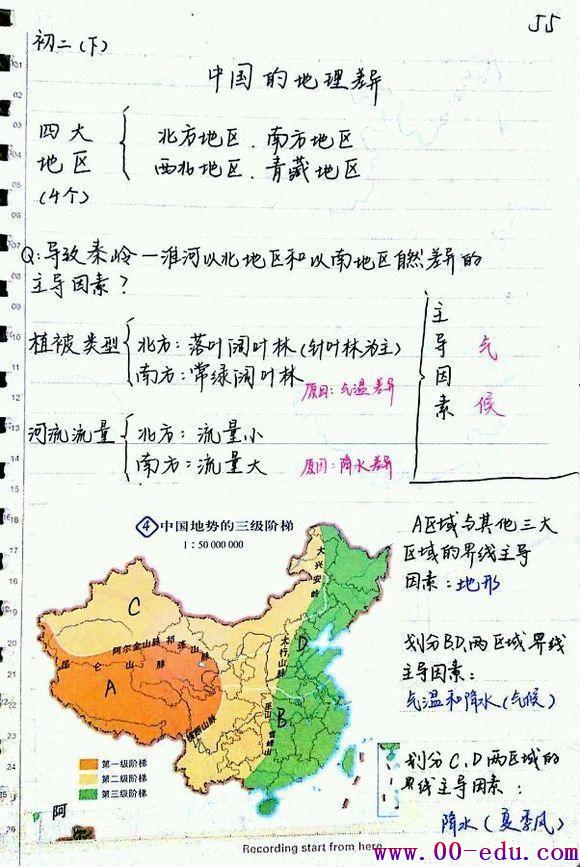 55
初二(下)
中国的地理差异
四大 { 北方地区、南方地区
地区 西北地区、青藏地区
(4个)
Q:导致秦岭—淮河以北地区和以南地区自然差异的
主导因素?
植被类型 { 北方:落叶阔叶林(针叶林为主)
南方:常绿阔叶林 原因:气温差异
河流流量 { 北方:流量小
南方:流量大 原因:降水差异
} 主导因素 气候
④中国地势的三级阶梯
1:50 000 000
大兴安岭
C
阿尔金山脉 祁连山脉
昆仑山脉
太行山脉
D
A
B
巫山
雪峰山
横断山脉
第一级阶梯
第二级阶梯
第三级阶梯
阿
A区域与其他三大
区域的界线主导
因素:地形
划分BD两区域界线
主导因素:
气温和降水(气候)
划分C、D两区域的
界线主导因素:
降水(夏季风)
Recording start from here
www.00-edu.com